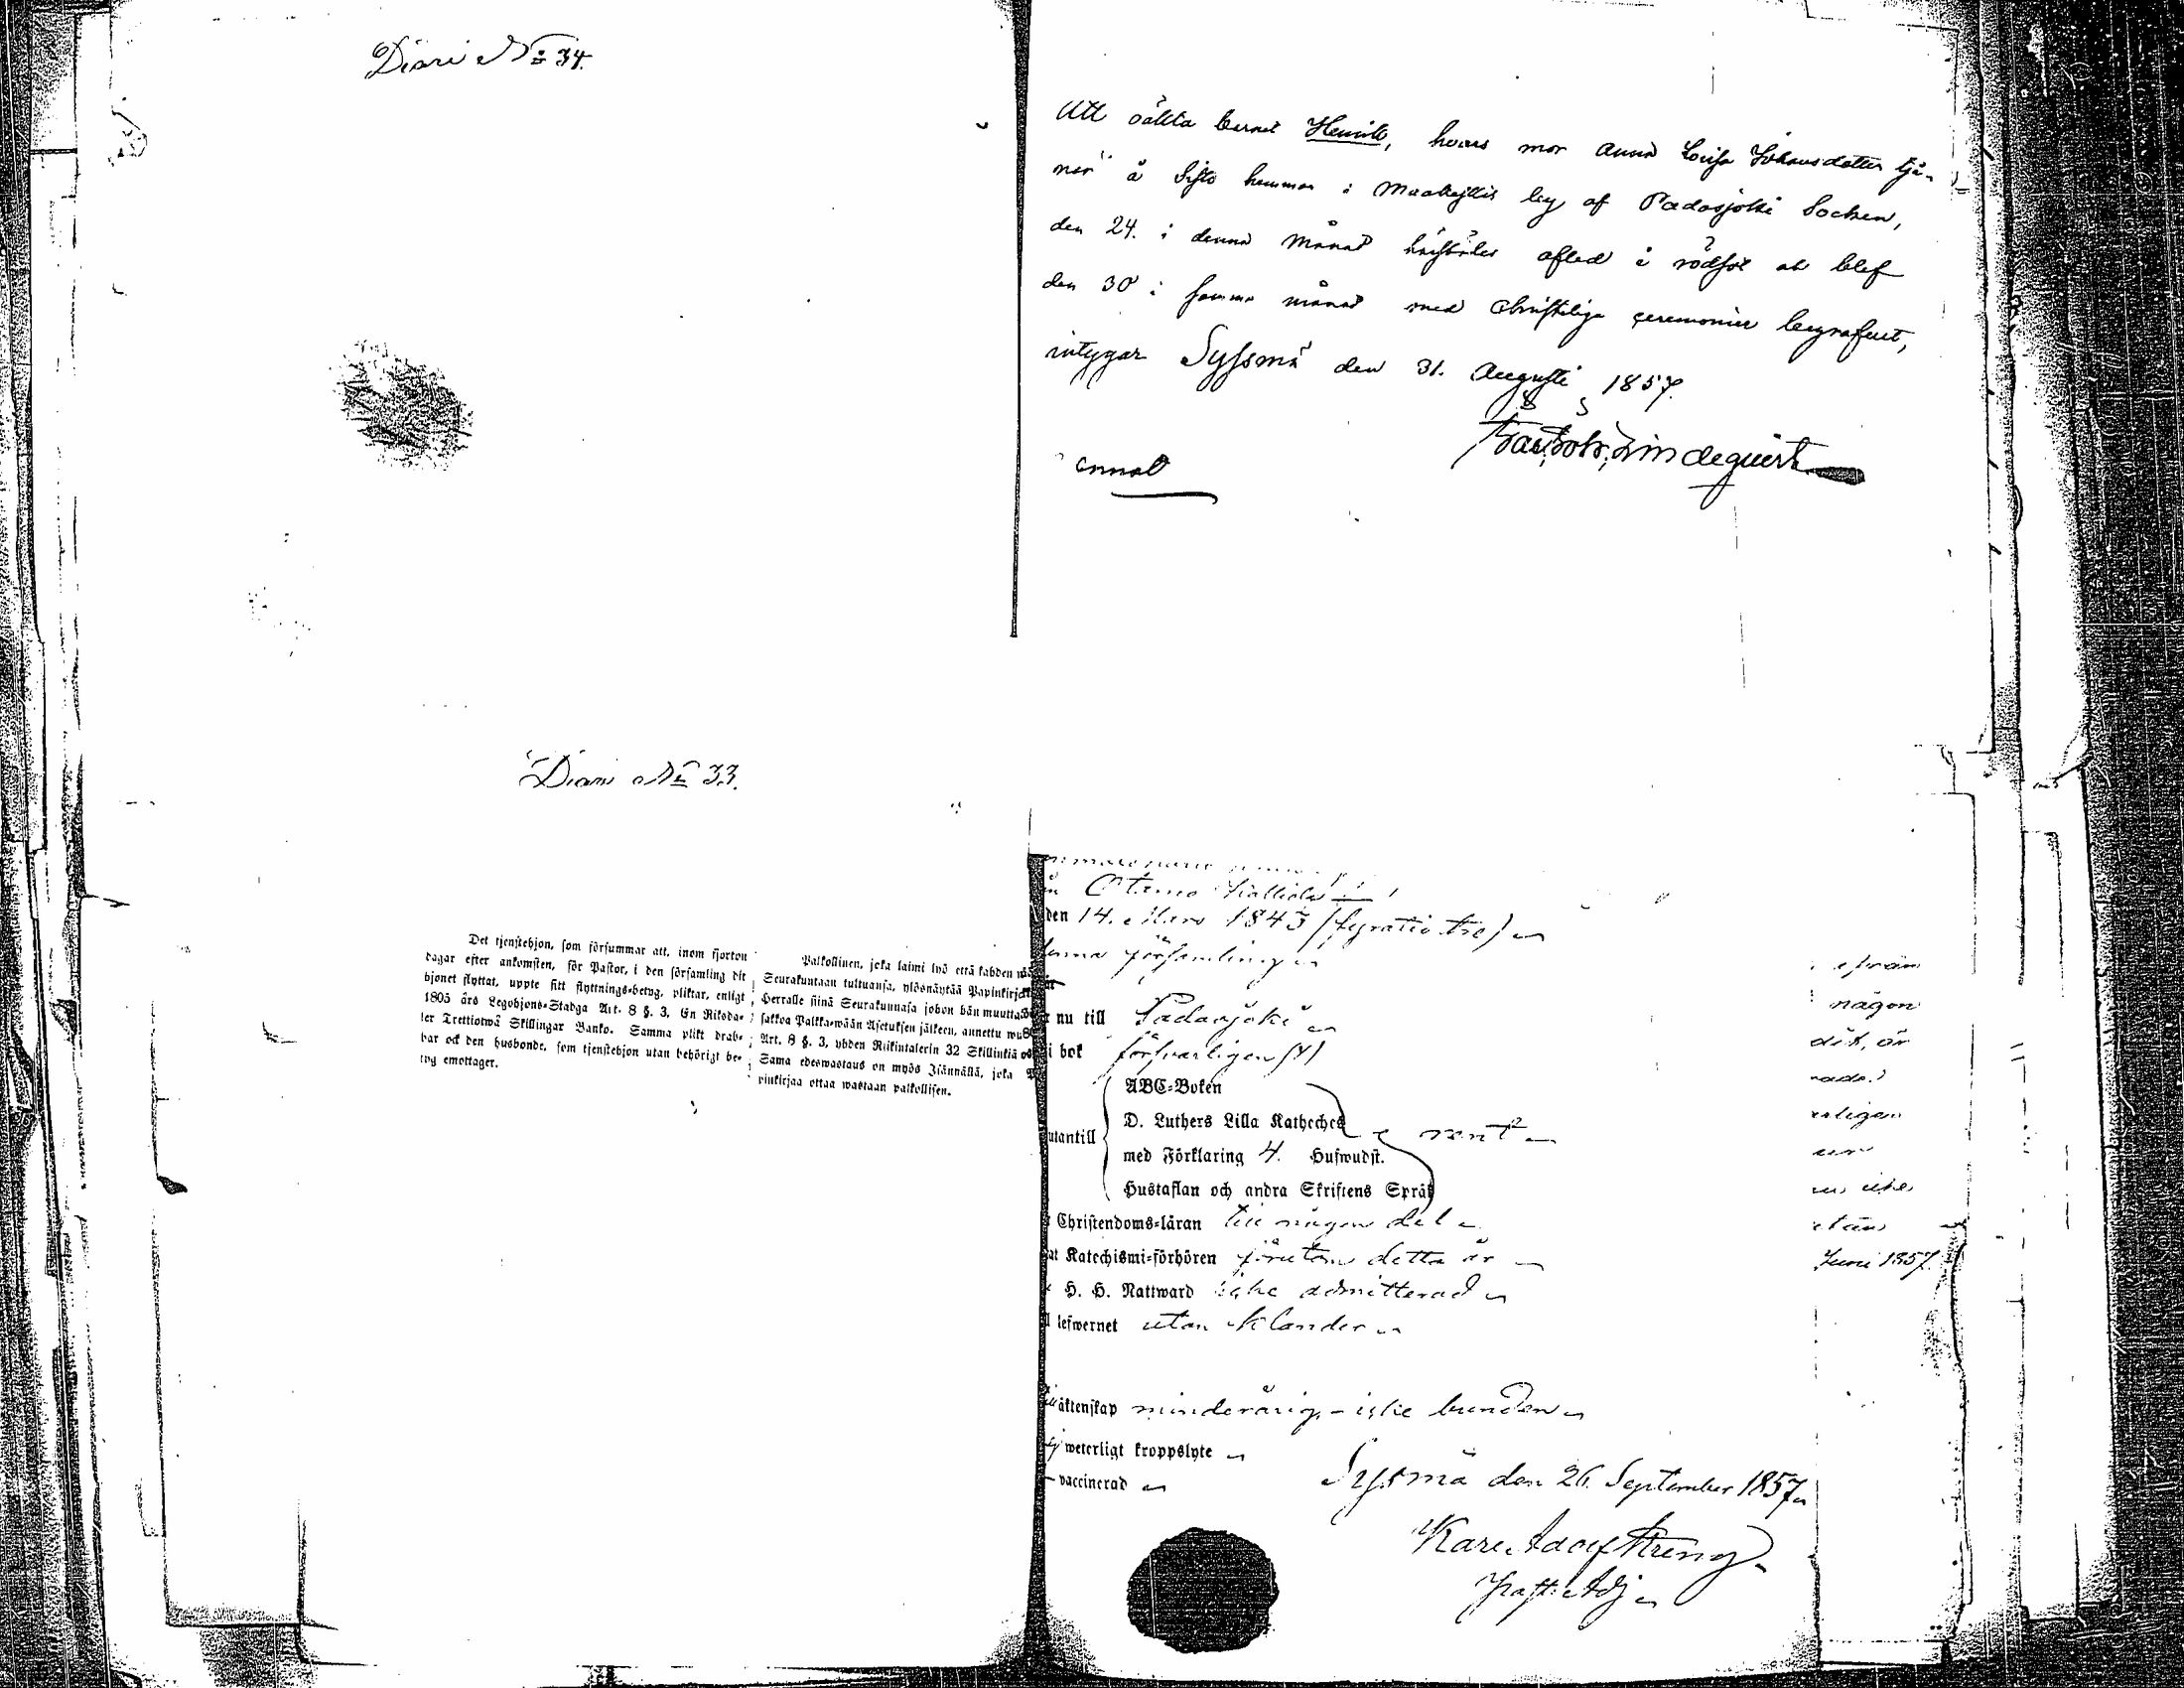 Diari № 34.
Att oäkta barnet Henrik, hvars mor Anna Lovisa Johansdotter tjä-
nar å Sisto hemman i Maakeskis by af Padasjoki Socken,
den 24. i denna månad härstädes afled i rödsot och blef
den 30 i samma månad med christeliga ceremonier begrafvet,
intygar Syssmä den 31. Augusti 1857.
Lindequist
Diari № 33.
Det tjenstehjon, som försummar att, inom fjorton
dagar efter ankomsten, för Pastor, i den församling dit
hjonet flyttat, uppte sitt flyttnings-betyg, pliktar, enligt
1805 års Legohjons-Stadga Art. 8 §. 3, En Riksda-
ler Trettiotwå Skillingar Banko. Samma plikt drab-
bar ock den husbonde, som tjenstehjon utan behörigt be-
tyg emottager.
Palkollinen, joka laimi lyö että kahden
Seurakuntaan tultuansa, ylösnäytää Papinkirja
Herralle siinä Seurakunnasa johon hän muutta
sakkoa Palkka-wään Asetuksen jälkeen, annettu
Art. 8 §. 3, yhden Riikintalerin 32 Skillinkiä
Sama edeswastaus on myös Isännällä, joka
pinkirjaa ottaa wastaan palkollisen.
Otamo
den 14. Mars 1843 (fyratio tre)
denna församling
nu till Padasjoki
i bok försvarligen
ABC-Boken
D. Luthers Lilla Katheches
utantill
rent
med Förklaring 4. Hufwudst.
Hustaflan och andra Skriftens Språk
Christendoms-läran till någon del
Katechismi-förhören förutom detta år
H. H. Nattward icke admitterad
lefwernet utan klander
äktenskap minderårig - icke bunden
weterligt kroppslyte
vaccinerad
Syssmä den 26. September 1857
Karl Adolf Streng
Past: Adj
från
någon
dit, är
icke
utan
Juni 1857.